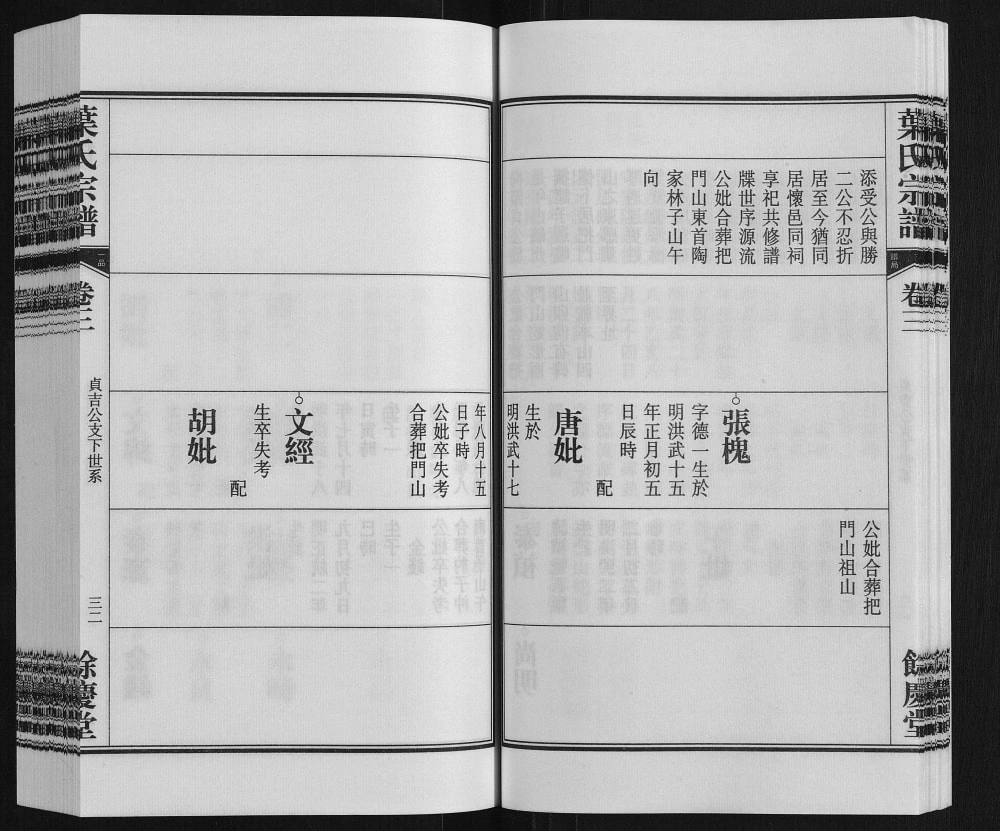 葉氏宗譜
卷三
餘慶堂
添受公與勝
二公不忍折
居至今猶同
居懷邑同祠
享祀共修譜
牒世序源流
公妣合葬把
門山東首陶
家林子山午
向
張槐
字德一生於
明洪武十五
年正月初五
日辰時
配
唐妣
生於
明洪武十七
年八月十五
日子時
公妣卒失考
合葬把門山
文經
生卒失考
配
胡妣
公妣合葬把
門山祖山
葉氏宗譜
一品
卷三
貞吉公支下世系
三二
餘慶堂